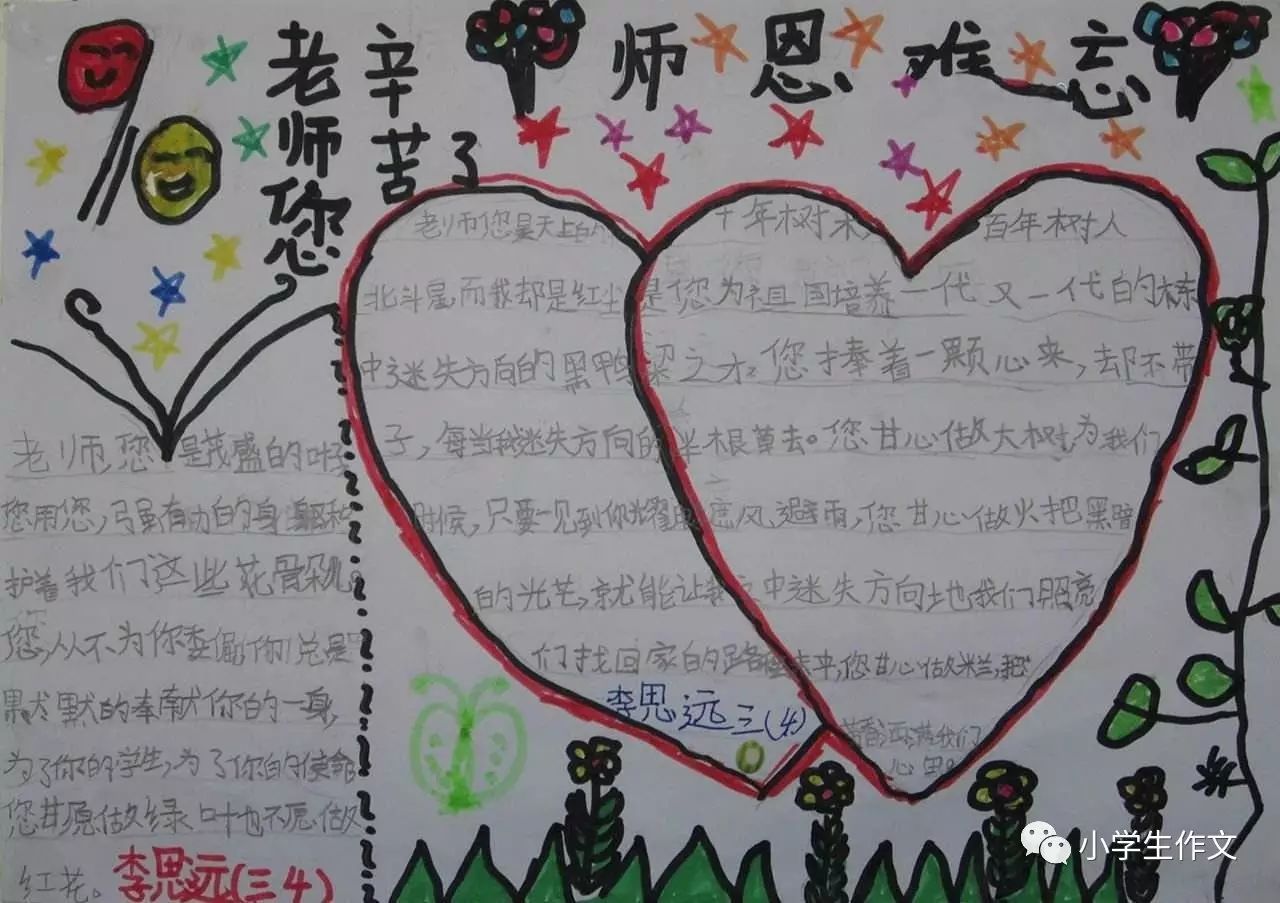 老师您
辛苦了
师恩难忘
老师,您是茂盛的叶子
您用您,强有力的身躯
护着我们这些花骨朵儿。
您,从不为你
总是
默默的奉献你的一身,
为了你的学生,为了你的使命
您甘愿做绿叶也不愿做
红花。
李思远(三4)
老师您是天上的
北斗星而我却是红尘
中迷失方向的黑鸭
子,每当我迷失方向的
时候,只要一见到你耀眼
的光芒,就能让我
们找回家的路
李思远三(4)
十年树木,百年树人
是您为祖国培养一代又一代的栋
梁之才。您捧着一颗心来,却不带
半根草去。您甘心做大树,为我们
遮风避雨,您甘心做火把黑暗
中迷失方向地我们照亮
您甘心做粉兰,把
芳香洒满我们
心里。
小学生作文